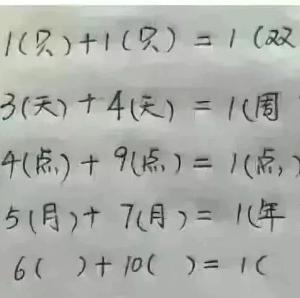 1(只)+1(只)=1(双
3(天)+4(天)=1(周
4(点)+9(点)=1(点)
5(月)+7(月)=1(年
6( )+10( )=1(